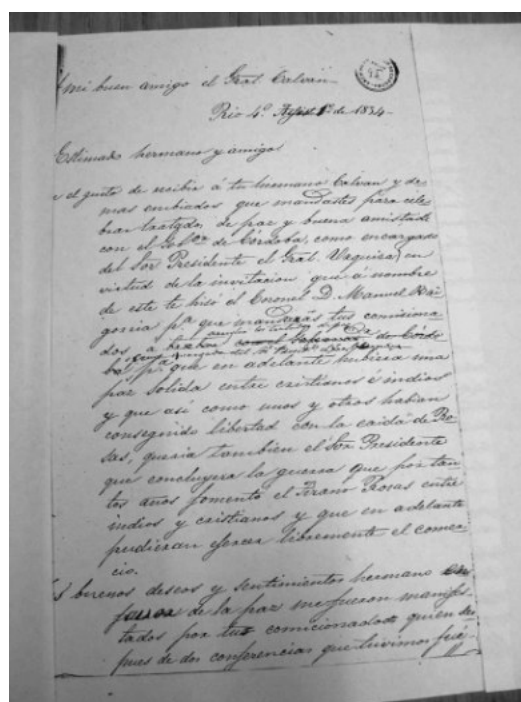 A mi buen amigo el Gral. Calvan
Rio 4º Agost 1º de 1854
Estimado hermano y amigo
el gusto de recibir á tu hermano Calvan y de
mas embiados que mandastes para cele
brar tratado de paz y buena amistad
con el Gobor de Cordoba, como encargado
del Sor Presidente el Gral. Urquiza, en
virtud de la invitacion que á nombre
de este te hiso el Coronel D. Manuel Bai
gorria pa que mandarás tus comisiona
dos á
ba pa que en adelante hubiera una
paz solida entre cristianos é indios
y que asi como unos y otros habian
conseguido libertad con la caida de Ro
sas, queria tambien el Sor Presidente
que concluyera la guerra que por tan
tos años fomentó el tirano Rosas entre
indios y cristianos y que en adelante
pudieran ejercer libremente el comer
cio.
buenos deseos y sentimientos hermano en
de la paz me fueron manifes
tados por tus comicionados quien des
pues de dos conferencias que tuvimos